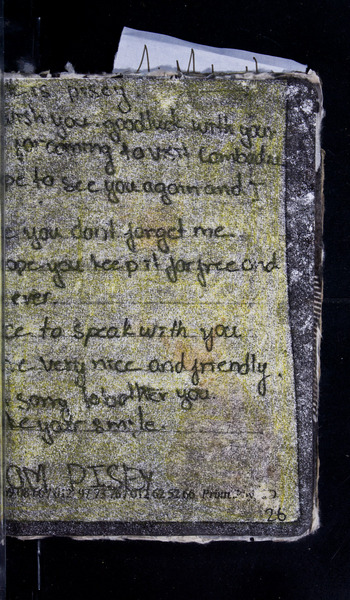 is pisey
wish you goodluck with your
for coming to visit Cambodia
to see you again and I
you dont forget me
ope you keep it for free and
ever.
ce to speak with you
very nice and friendly.
song to bother you.
your smile.
OM PISEY
26